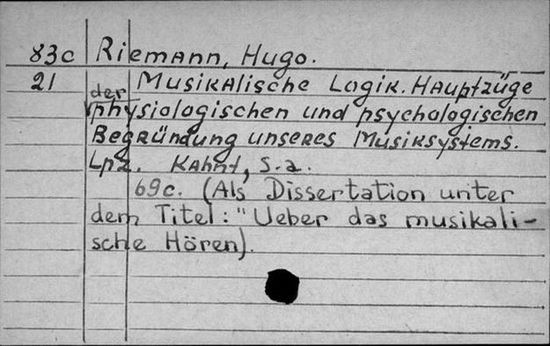 83c Riemann, Hugo.
21 Musikalische Logik. Hauptzüge
der physiologischen und psychologischen
Begründung unseres Musiksystems.
Lpz. Kahnt, s.a.
69c. (Als Dissertation unter
dem Titel: "Ueber das musikali-
sche Hören).